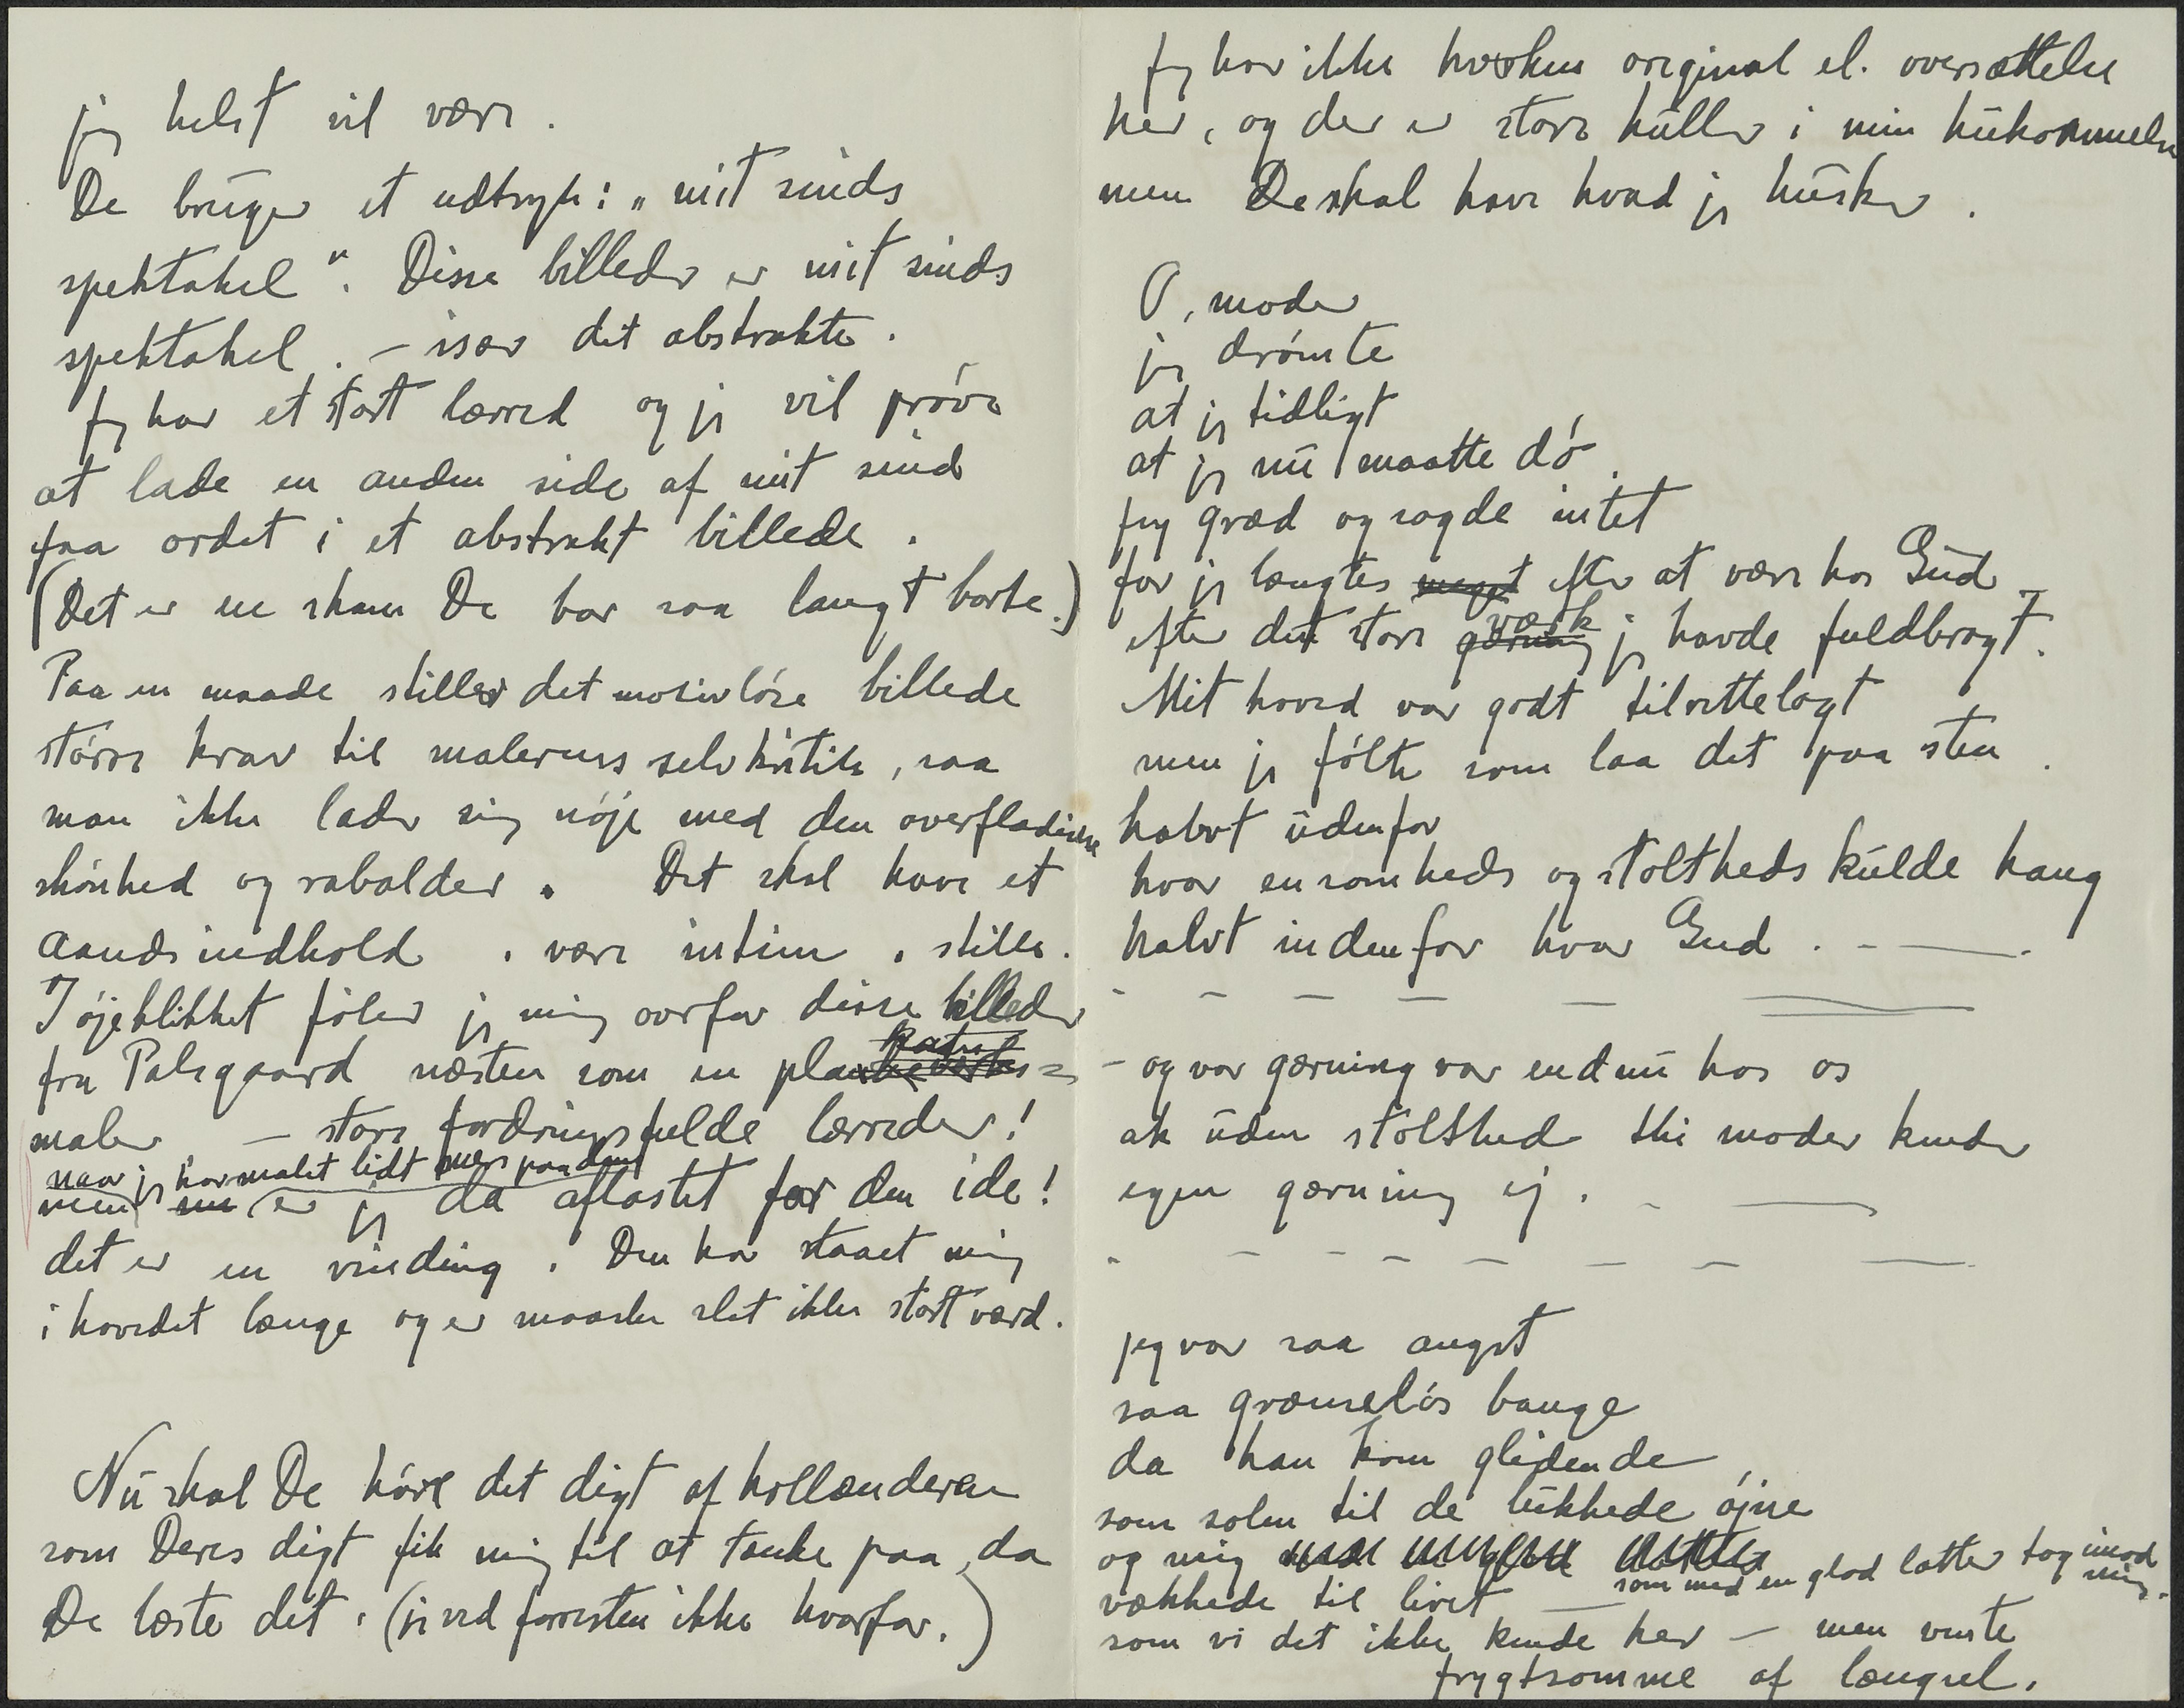 jeg helst vil være.
De bruger et udtryk: „mit sinds
spektakel“. Disse billeder er mit sinds
spektakel. – især det abstrakte.
Jeg har et stort lærred og jeg vil prøve
at lade en anden side af mit sind
faa ordet i et abstrakt billede.
(Det er en skam De bor saa langt borte.)
Paa en maade stiller det motivløse billede
større krav til malerens selvkritik, saa
man ikke lader sig nøje med den overfladiske
skønhed og rabalder. Det skal have et
aandsindhold. være intim. stille.
I øjeblikket føler jeg mig overfor disse billeder
fra Palsgaard næsten som en plakat=
maler – store fordringsfulde lærreder!
naar jeg har malet lidt mere paa dem
men nu er jeg da aflastet for den ide!
det er en vinding. Den har staaet mig
i hovedet længe og er maaske slet ikke stort værd.
Nu skal De høre det digt af hollænderen
som Deres digt fik mig til at tænke paa, da
De læste det. (jeg ved forresten ikke hvorfor.)
Jeg har ikke hverken original el. oversættelse
her, og der er store huller i min hukommelse
men De skal have hvad jeg husker.
O, moder
jeg drømte
at jeg tidligt
at jeg nu maatte dø.
jeg græd og sagde intet
for jeg længtes meget efter at være hos Gud
efter det store gærning værk jeg havde fuldbragt.
Mit hoved var godt tilrettelagt
men jeg følte som laa det paa sten.
halvt udenfor
hvor ensomheds og stoltheds kulde hang
halvt indenfor hvor Gud . – —.
– – – – – —
– og vor gærning var endnu hos os
ak uden stolthed thi moder kender
egen gærning ej. – —
– – – – – – – —
jeg var saa angst
saa grænseløs bange
da han kom glidende
som solen til de lukkede øjne
og mig
vækkede til livet — som med en glad latter tog imod mig.
som vi det ikke kendte her – men venter
frygtsomme af længsel.